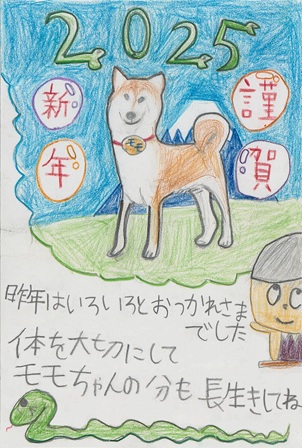 2025
謹賀
新年
モモ
昨年はいろいろとおつかれさま
でした
体を大切にして
モモちゃんの分も長生きしてね